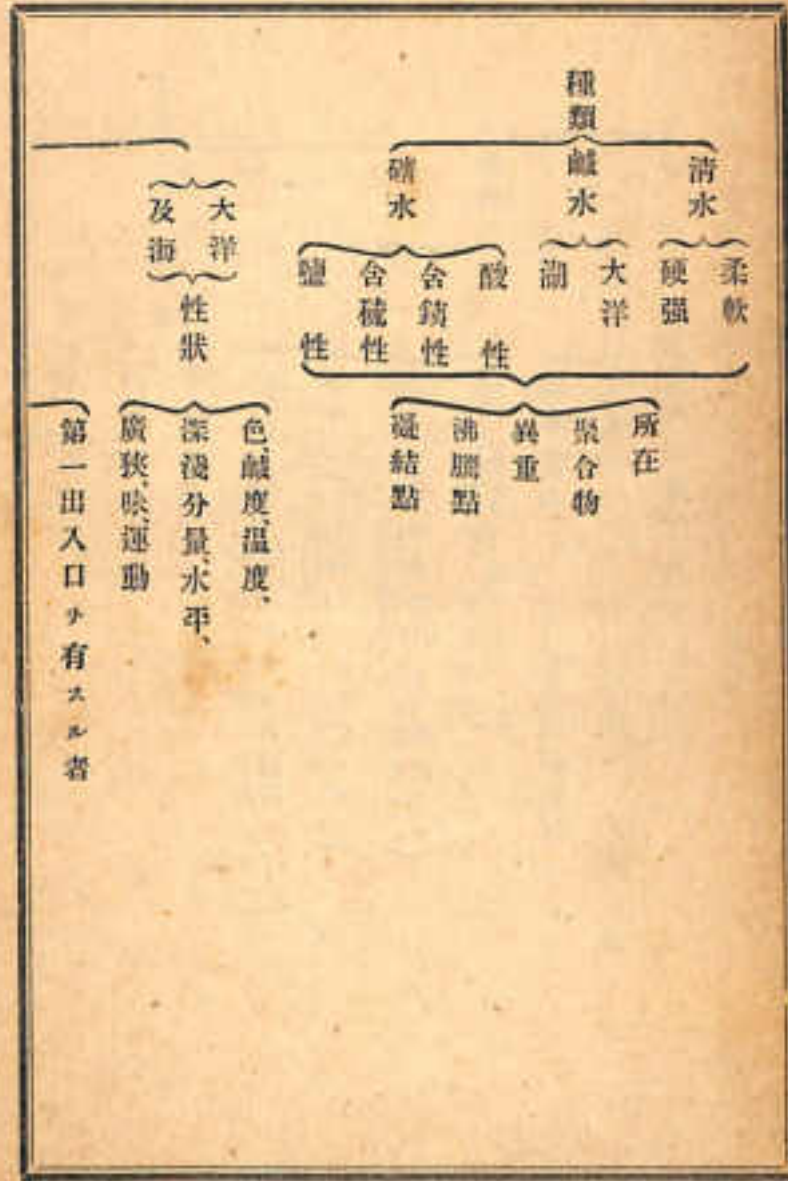 種類
清水
柔軟
硬强
鹹水
大洋
湖
礦水
酸性
含銕性
含硫性
鹽性
所在
聚合物
異重
沸騰點
凝結點
大洋
及海
性狀
色、鹹度、溫度、
深淺分量、水平、
廣狹、味、運動
第一出入口ヲ有スル者